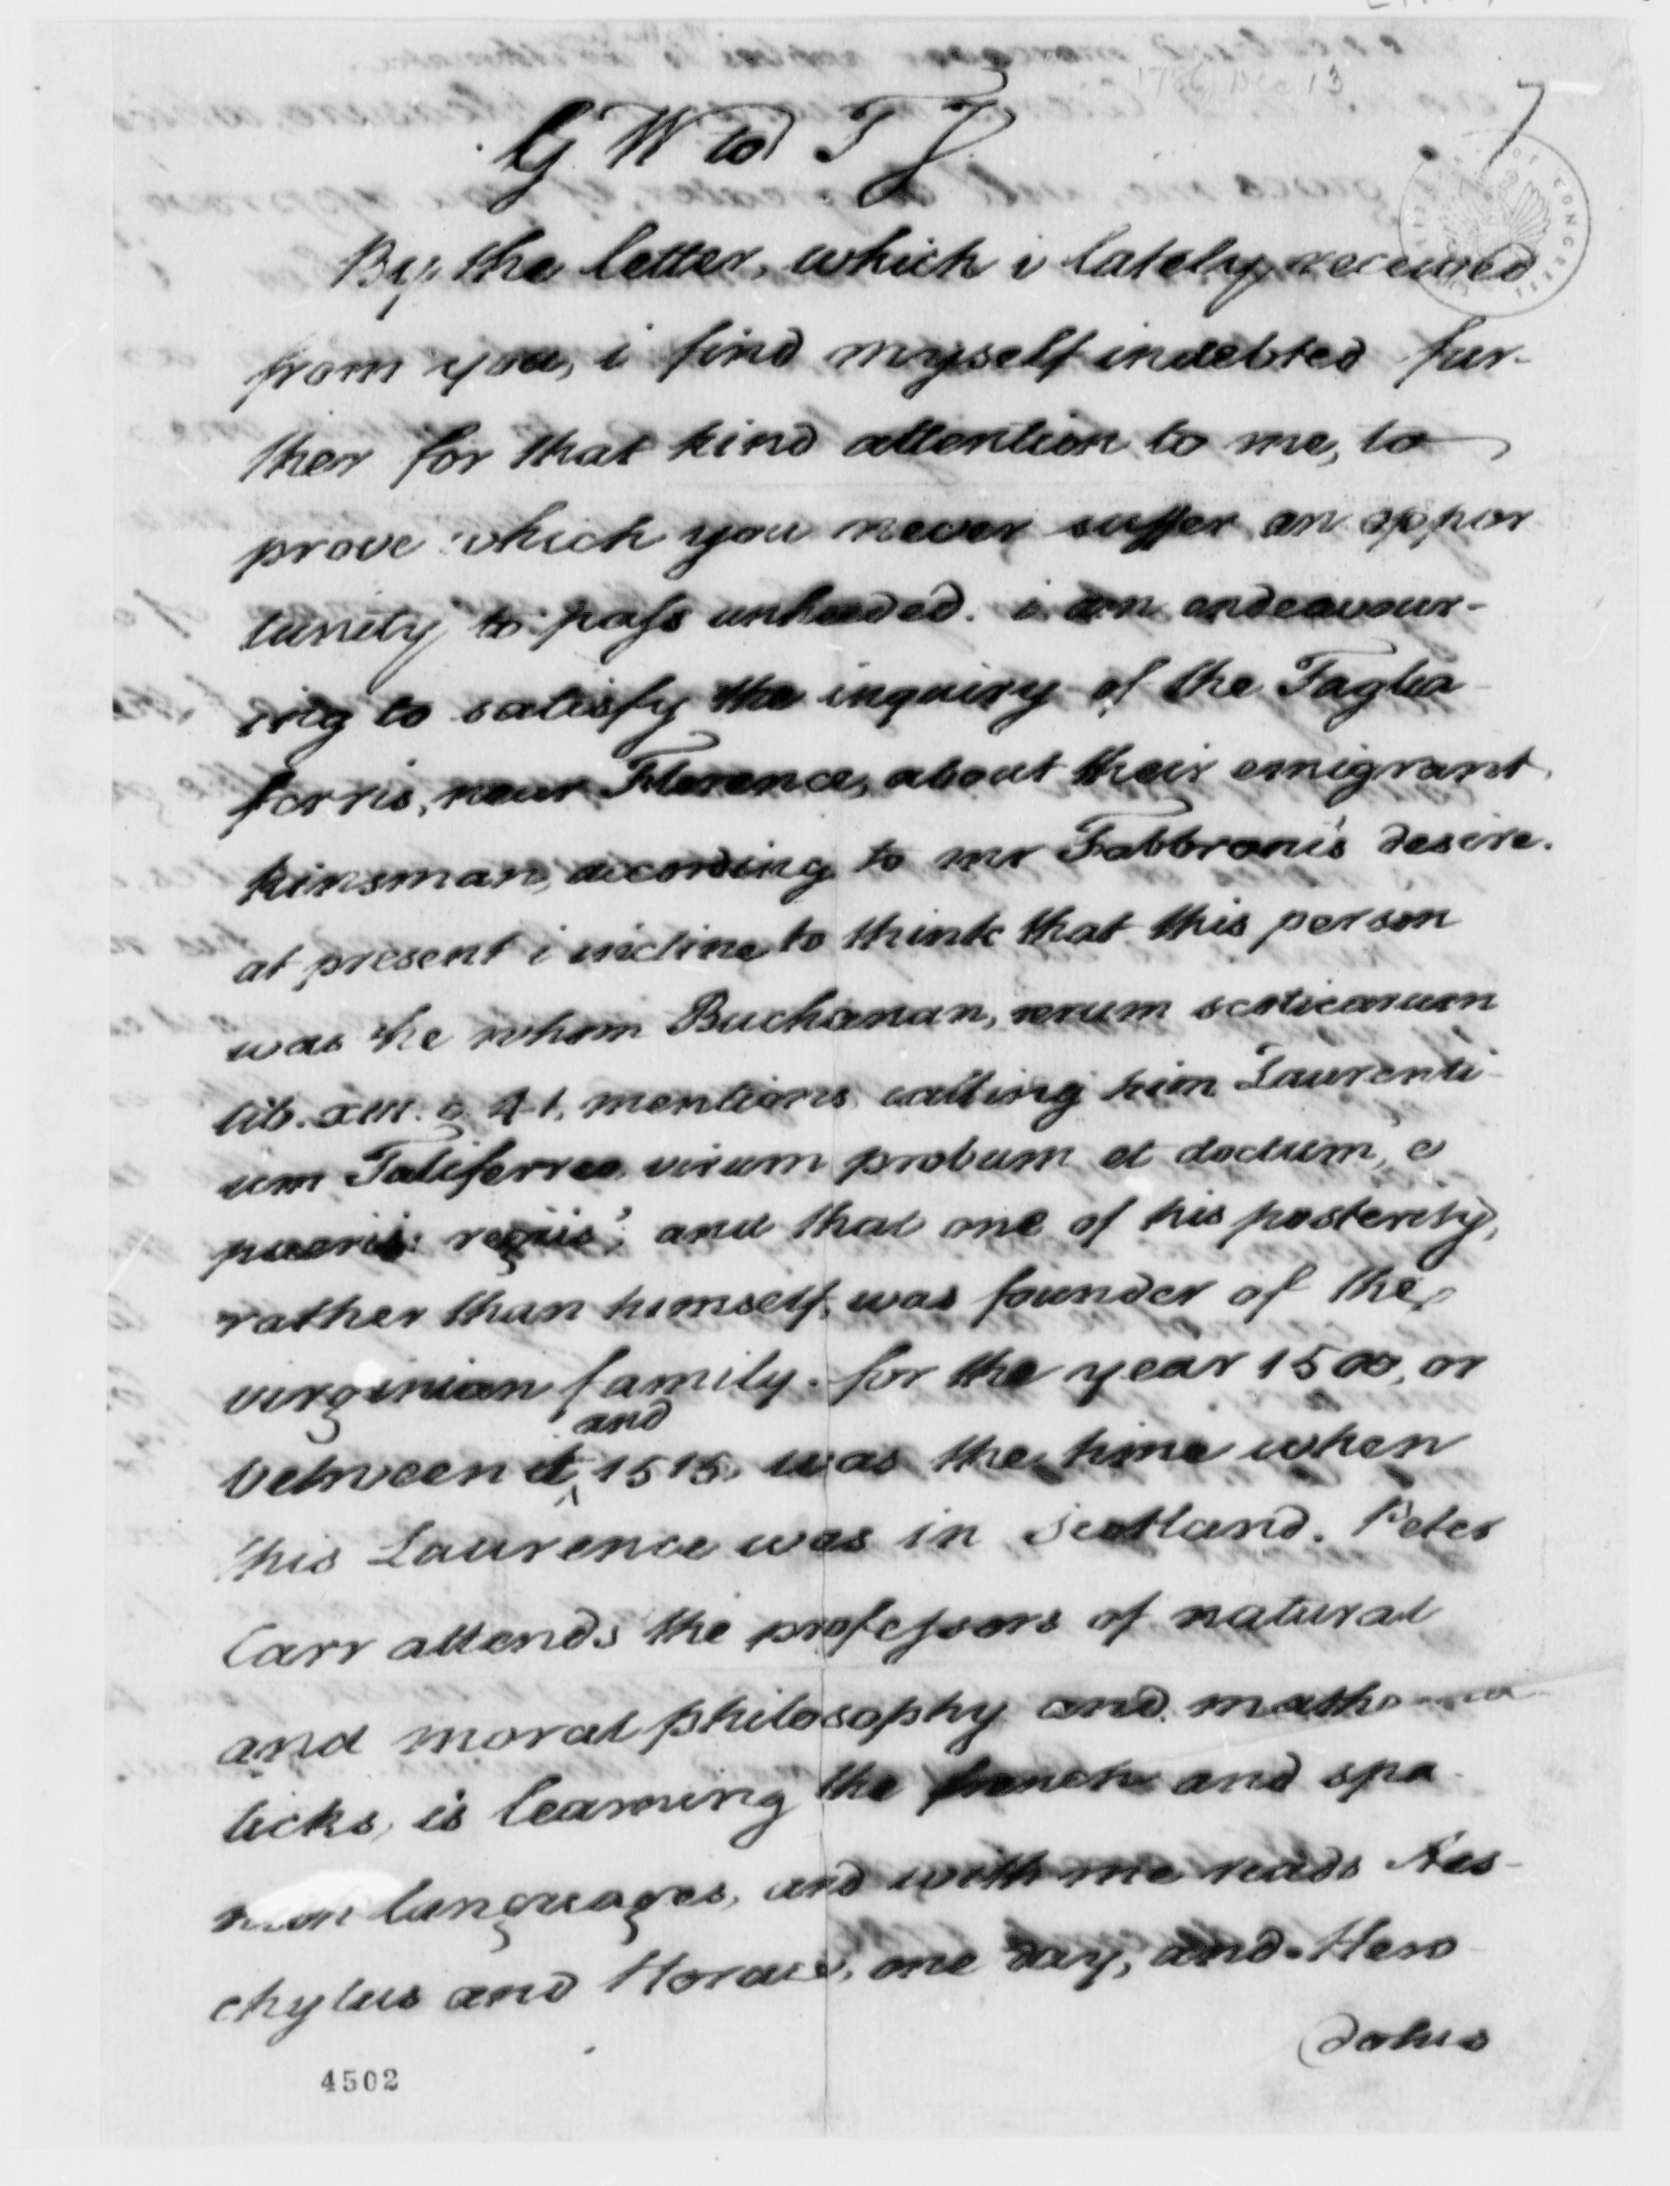 1786 Dec 13
7
G W to T J.
By the letter, which i lately received
from you, i find myself indebted fur-
ther for that kind attention to me, to
prove which you never suffer an oppor
tunity to pass unheeded. i am endeavour-
ing to satisfy the inquiry of the Taglia
ferris, near Florence, about their emigrant
kinsman, according to mr Fabbroni's desire.
at present i incline to think that this person
was he whom Buchanan, rerum scoticarum
lib. 41, mentions calling him Laurenti-
um Taliferreo virum probum et doctum, e
pueris regiis; and that one of his posterity,
rather than himself, was founder of the
virginian family. for the year 1500, or
between it and 1515, was the time when
this Laurence was in Scotland. Peter
Carr attends the professors of natural
and moral philosophy and mathema
ticks, is learning the french and spa
languages, and with me reads Aes-
chylus and Horace, one day, and Hero
dotus
4502